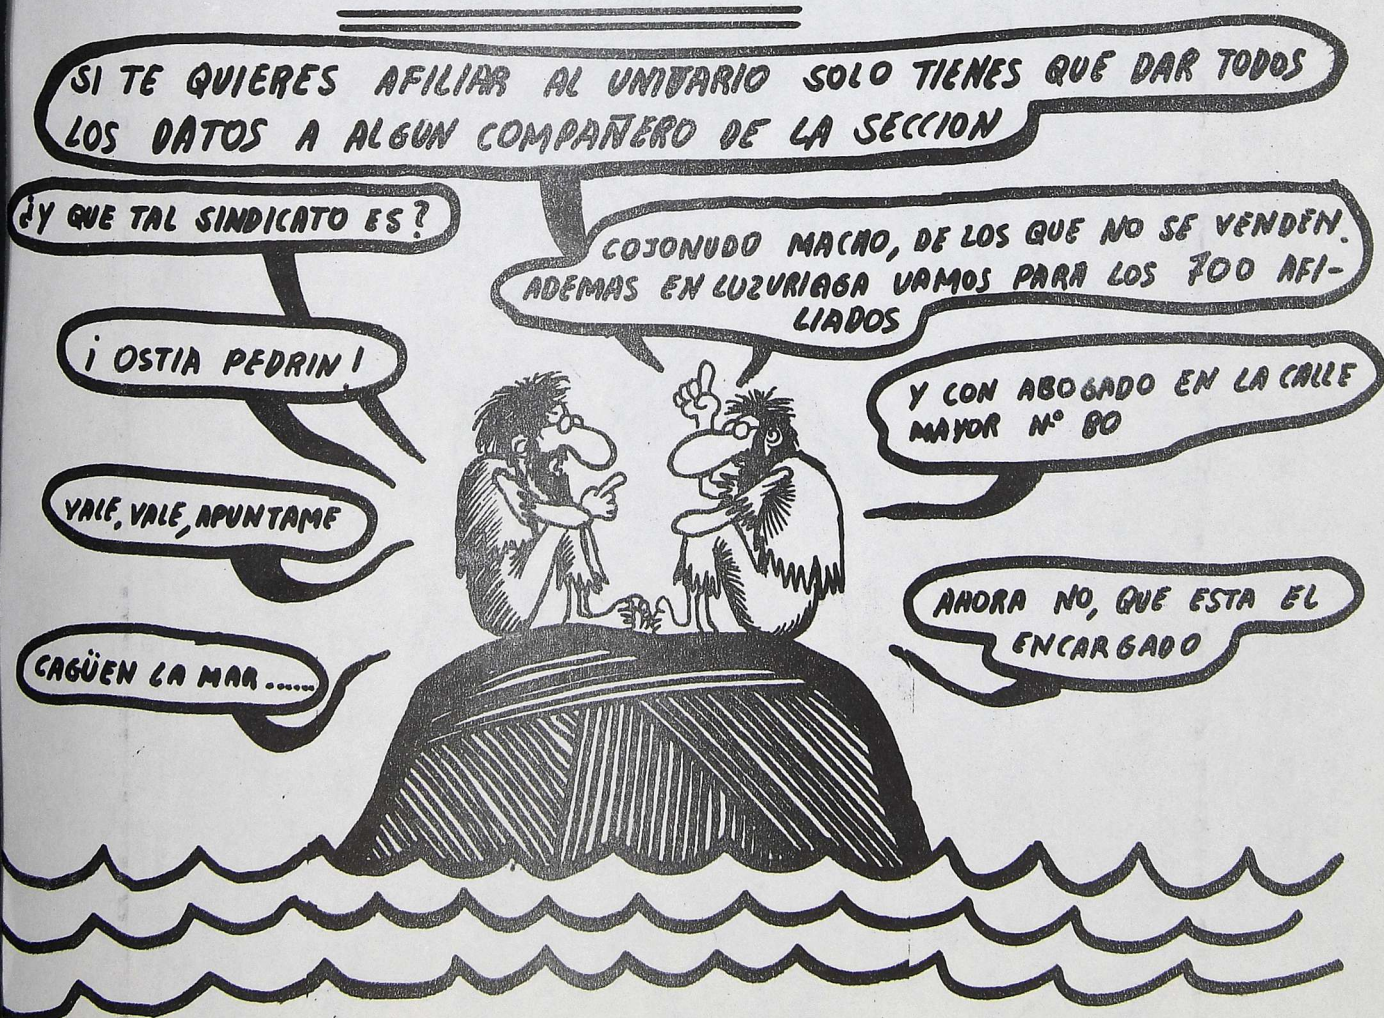 SI TE QUIERES AFILIAR AL UNITARIO SOLO TIENES QUE DAR TODOS
LOS DATOS A ALGUN COMPAÑERO DE LA SECCION
¿Y QUE TAL SINDICATO ES?
COJONUDO MACHO, DE LOS QUE NO SE VENDEN.
ADEMAS EN LUZURIAGA VAMOS PARA LOS 700 AFI-
LIADOS
¡ OSTIA PEDRIN !
Y CON ABOGADO EN LA CALLE
MAYOR Nº 80
VALE, VALE, APUNTAME
AHORA NO, QUE ESTA EL
ENCARGADO
CAGÜEN LA MAR......